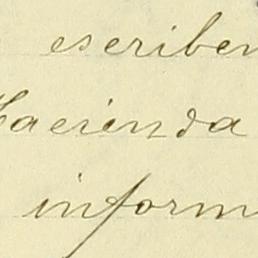 escriben
Hacienda
inform